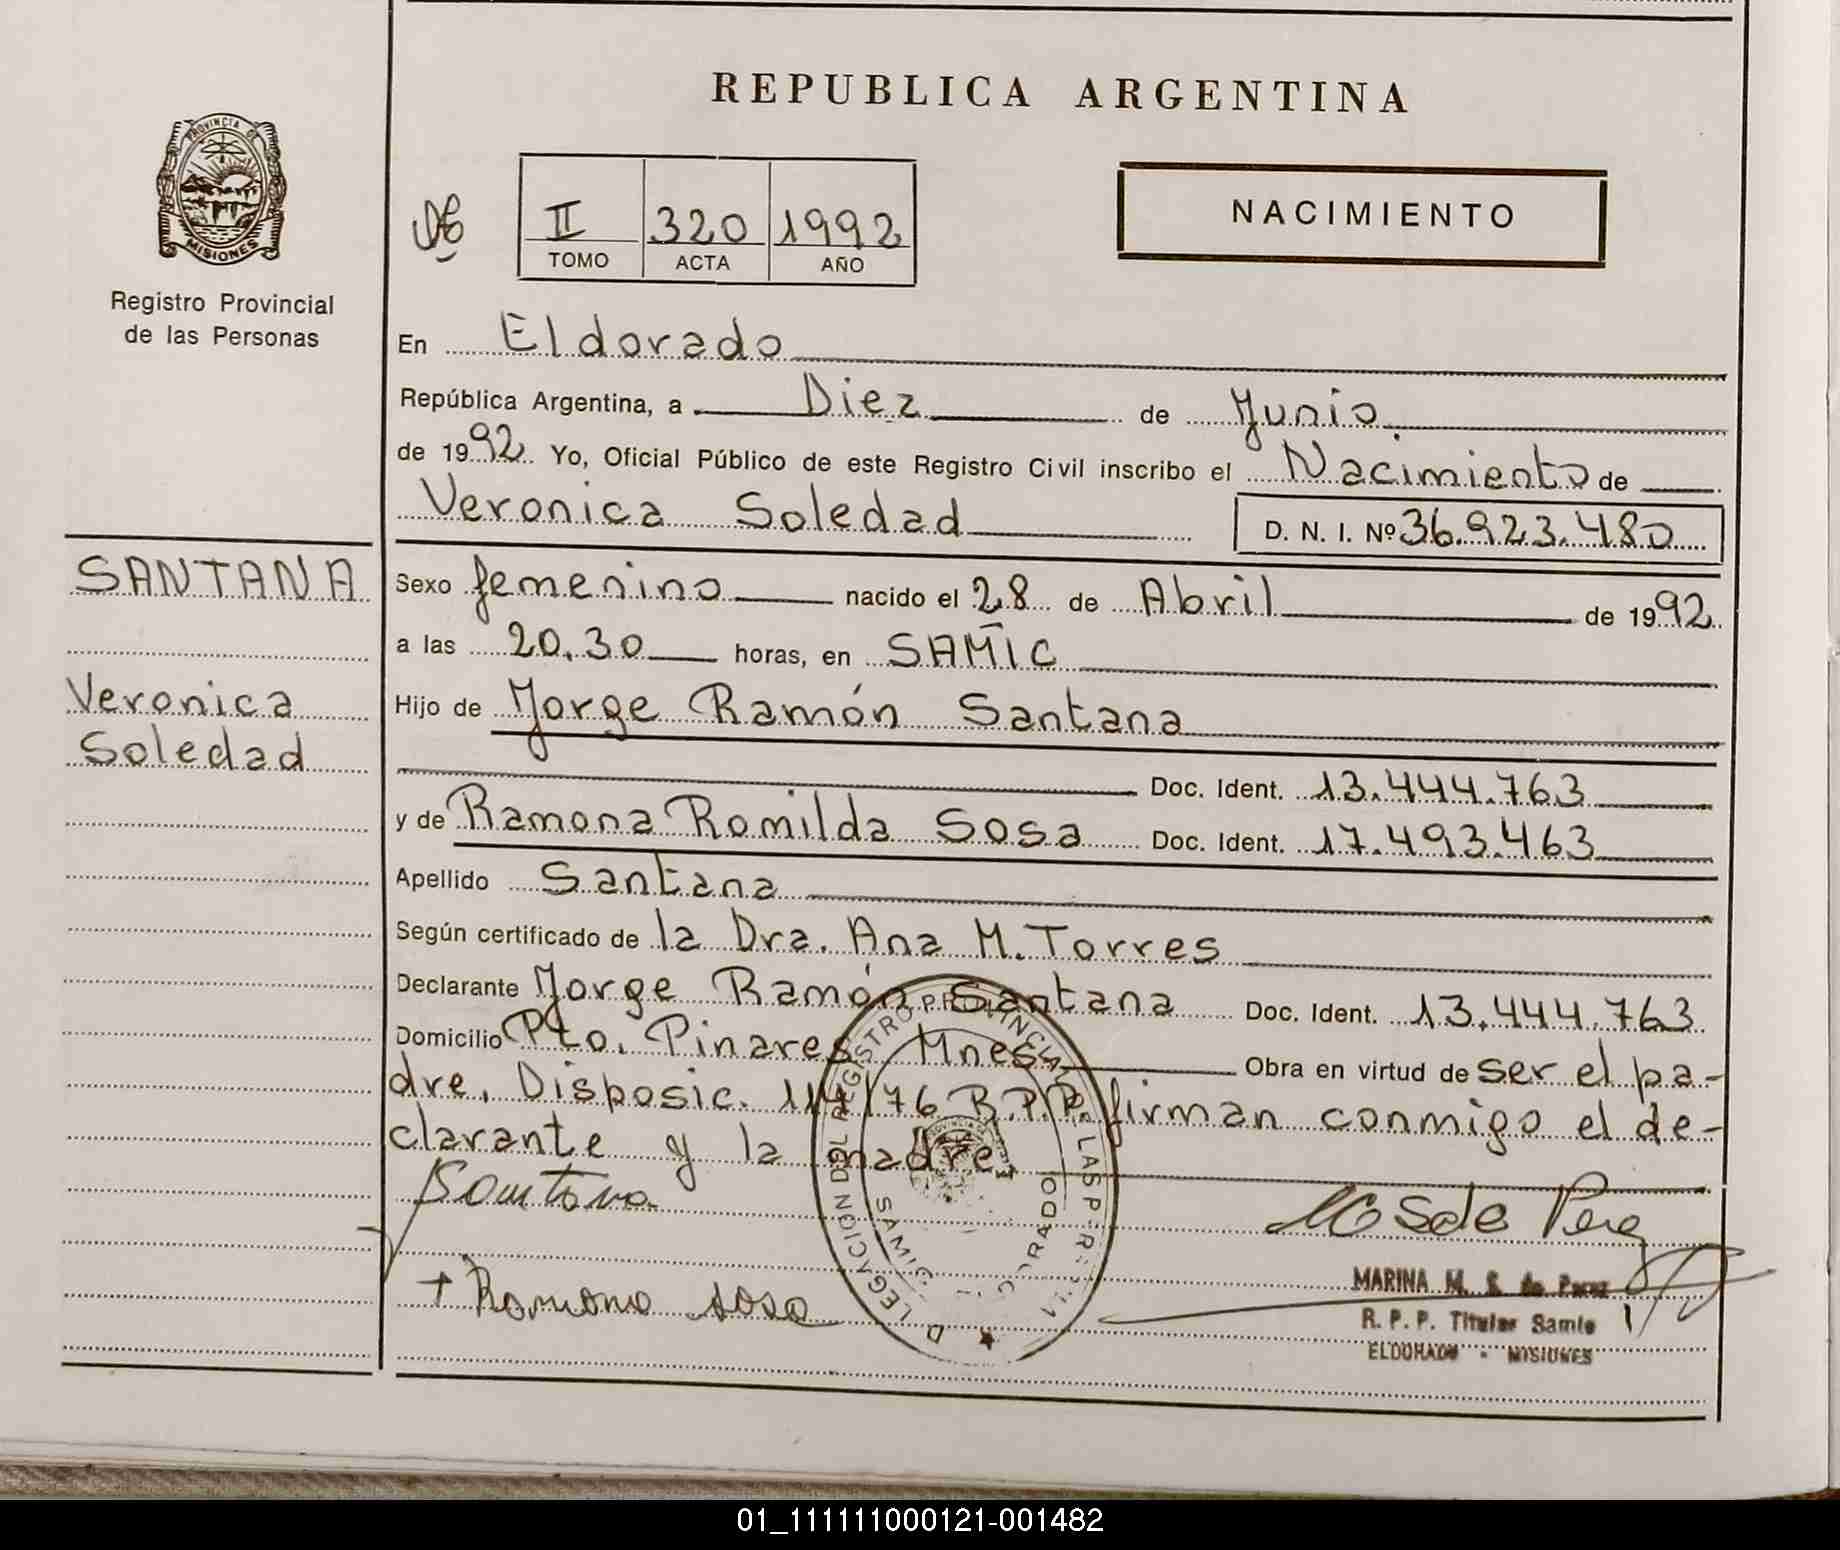 REPUBLICA ARGENTINA
PROVINCIA DE
MISIONES
Registro Provincial
de las Personas
II 320 1992
TOMO ACTA AÑO
NACIMIENTO
En Eldorado
República Argentina, a Diez de Junio
de 1992 Yo, Oficial Público de este Registro Civil inscribo el Nacimiento de
Veronica Soledad D. N. I. Nº 36.923.480
SANTANA
Veronica
Soledad
Sexo femenino nacido el 28 de Abril de 1992
a las 20.30 horas, en SAMIC
Hijo de Jorge Ramón Santana
Doc. Ident. 13.444.763
y de Ramona Romilda Sosa Doc. Ident. 17.493.463
Apellido Santana
Según certificado de la Dra. Ana M. Torres
Declarante Jorge Ramón Santana Doc. Ident. 13.444.763
Domicilio Pto. Pinares Mnes. Obra en virtud de ser el pa-
dre. Disposic. 114/76 R.P.P. firman conmigo el de-
clarante y la madre.
Santana
Ramona Sosa
MARINA M. S. de Perez
R. P. P. Titular Samic
ELDORADO - MISIONES
01_111111000121-001482